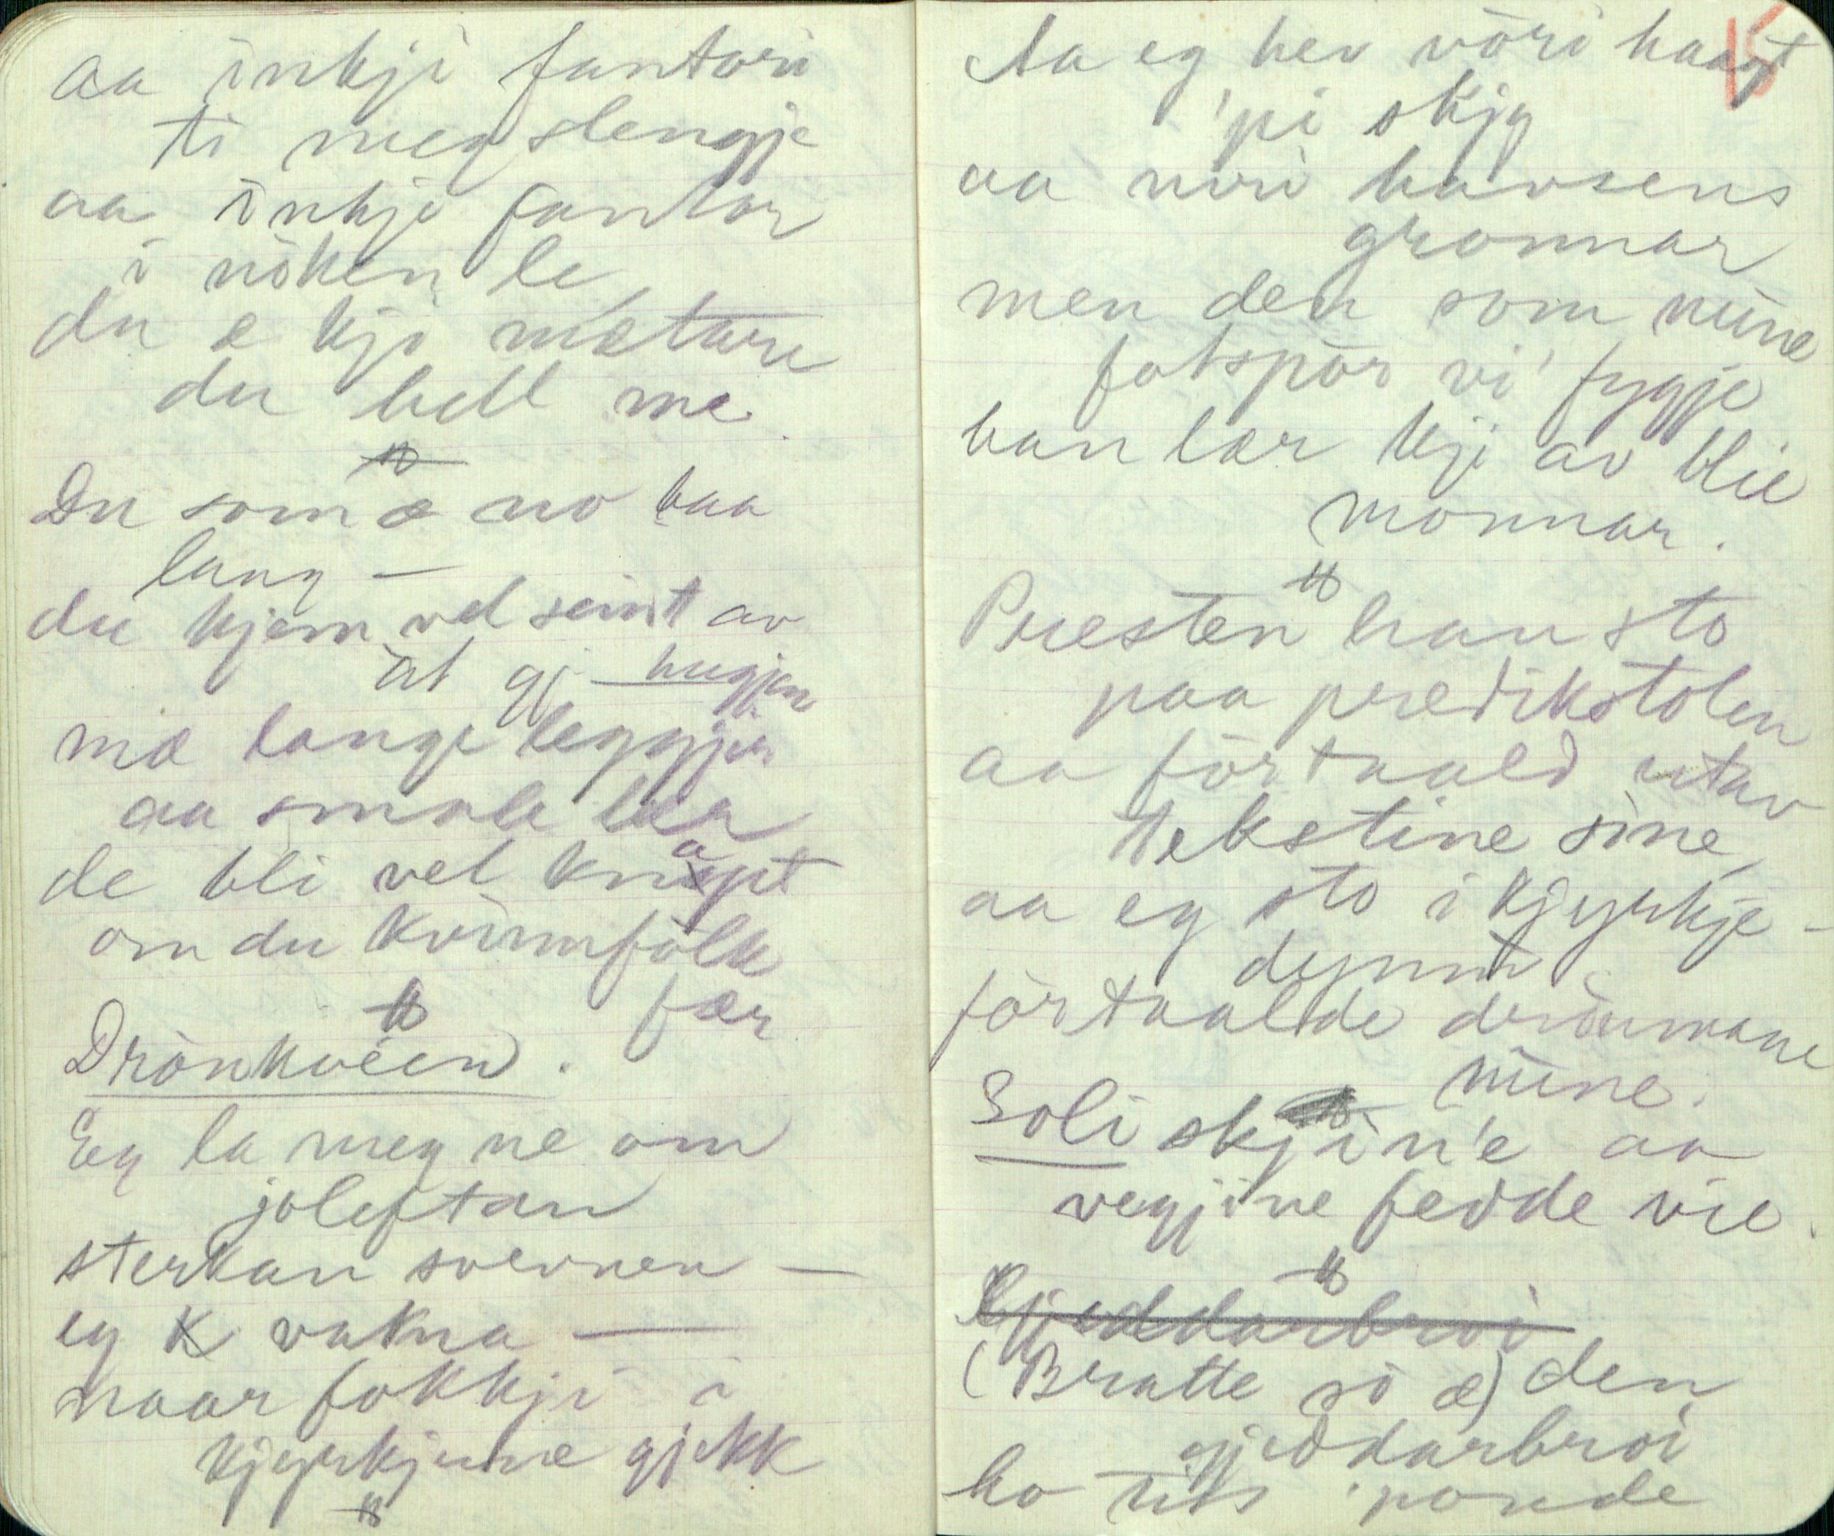 aa inkji fantari
ti meg slengje
aa inkji fantar
i nöken le
du æ kji mætare
du hell me.
Du som æ no haa
lang —
du kjem vel seint av
at gj — hugjen
mæ lange leggjir
aa smale lær
de bli vel knapt
om du kvinnfolk
fær
Draumkvéen.
Eg la meg ne om
joleftan
sterkan svevnen —
eg vakna —
naar fokkji i
kjyrkjune gjekk
15
Aa eg hev vöri haagt
'pi skjy
aa niri havsens
gronnar
men den som mine
fotspör vi' fygje
han lær kji av blie
monnar.
Presten han sto
paa predikstolen
aa förtaald utav
tekstine sine,
aa eg sto i kjyrkje-
dynn
förtaalde draumane
mine.
Soli skjin'e aa
vegjine fedde vie.
Gjeddarbroi
(Bratte so æ) den
gjeddarbroi
ho 'ponde